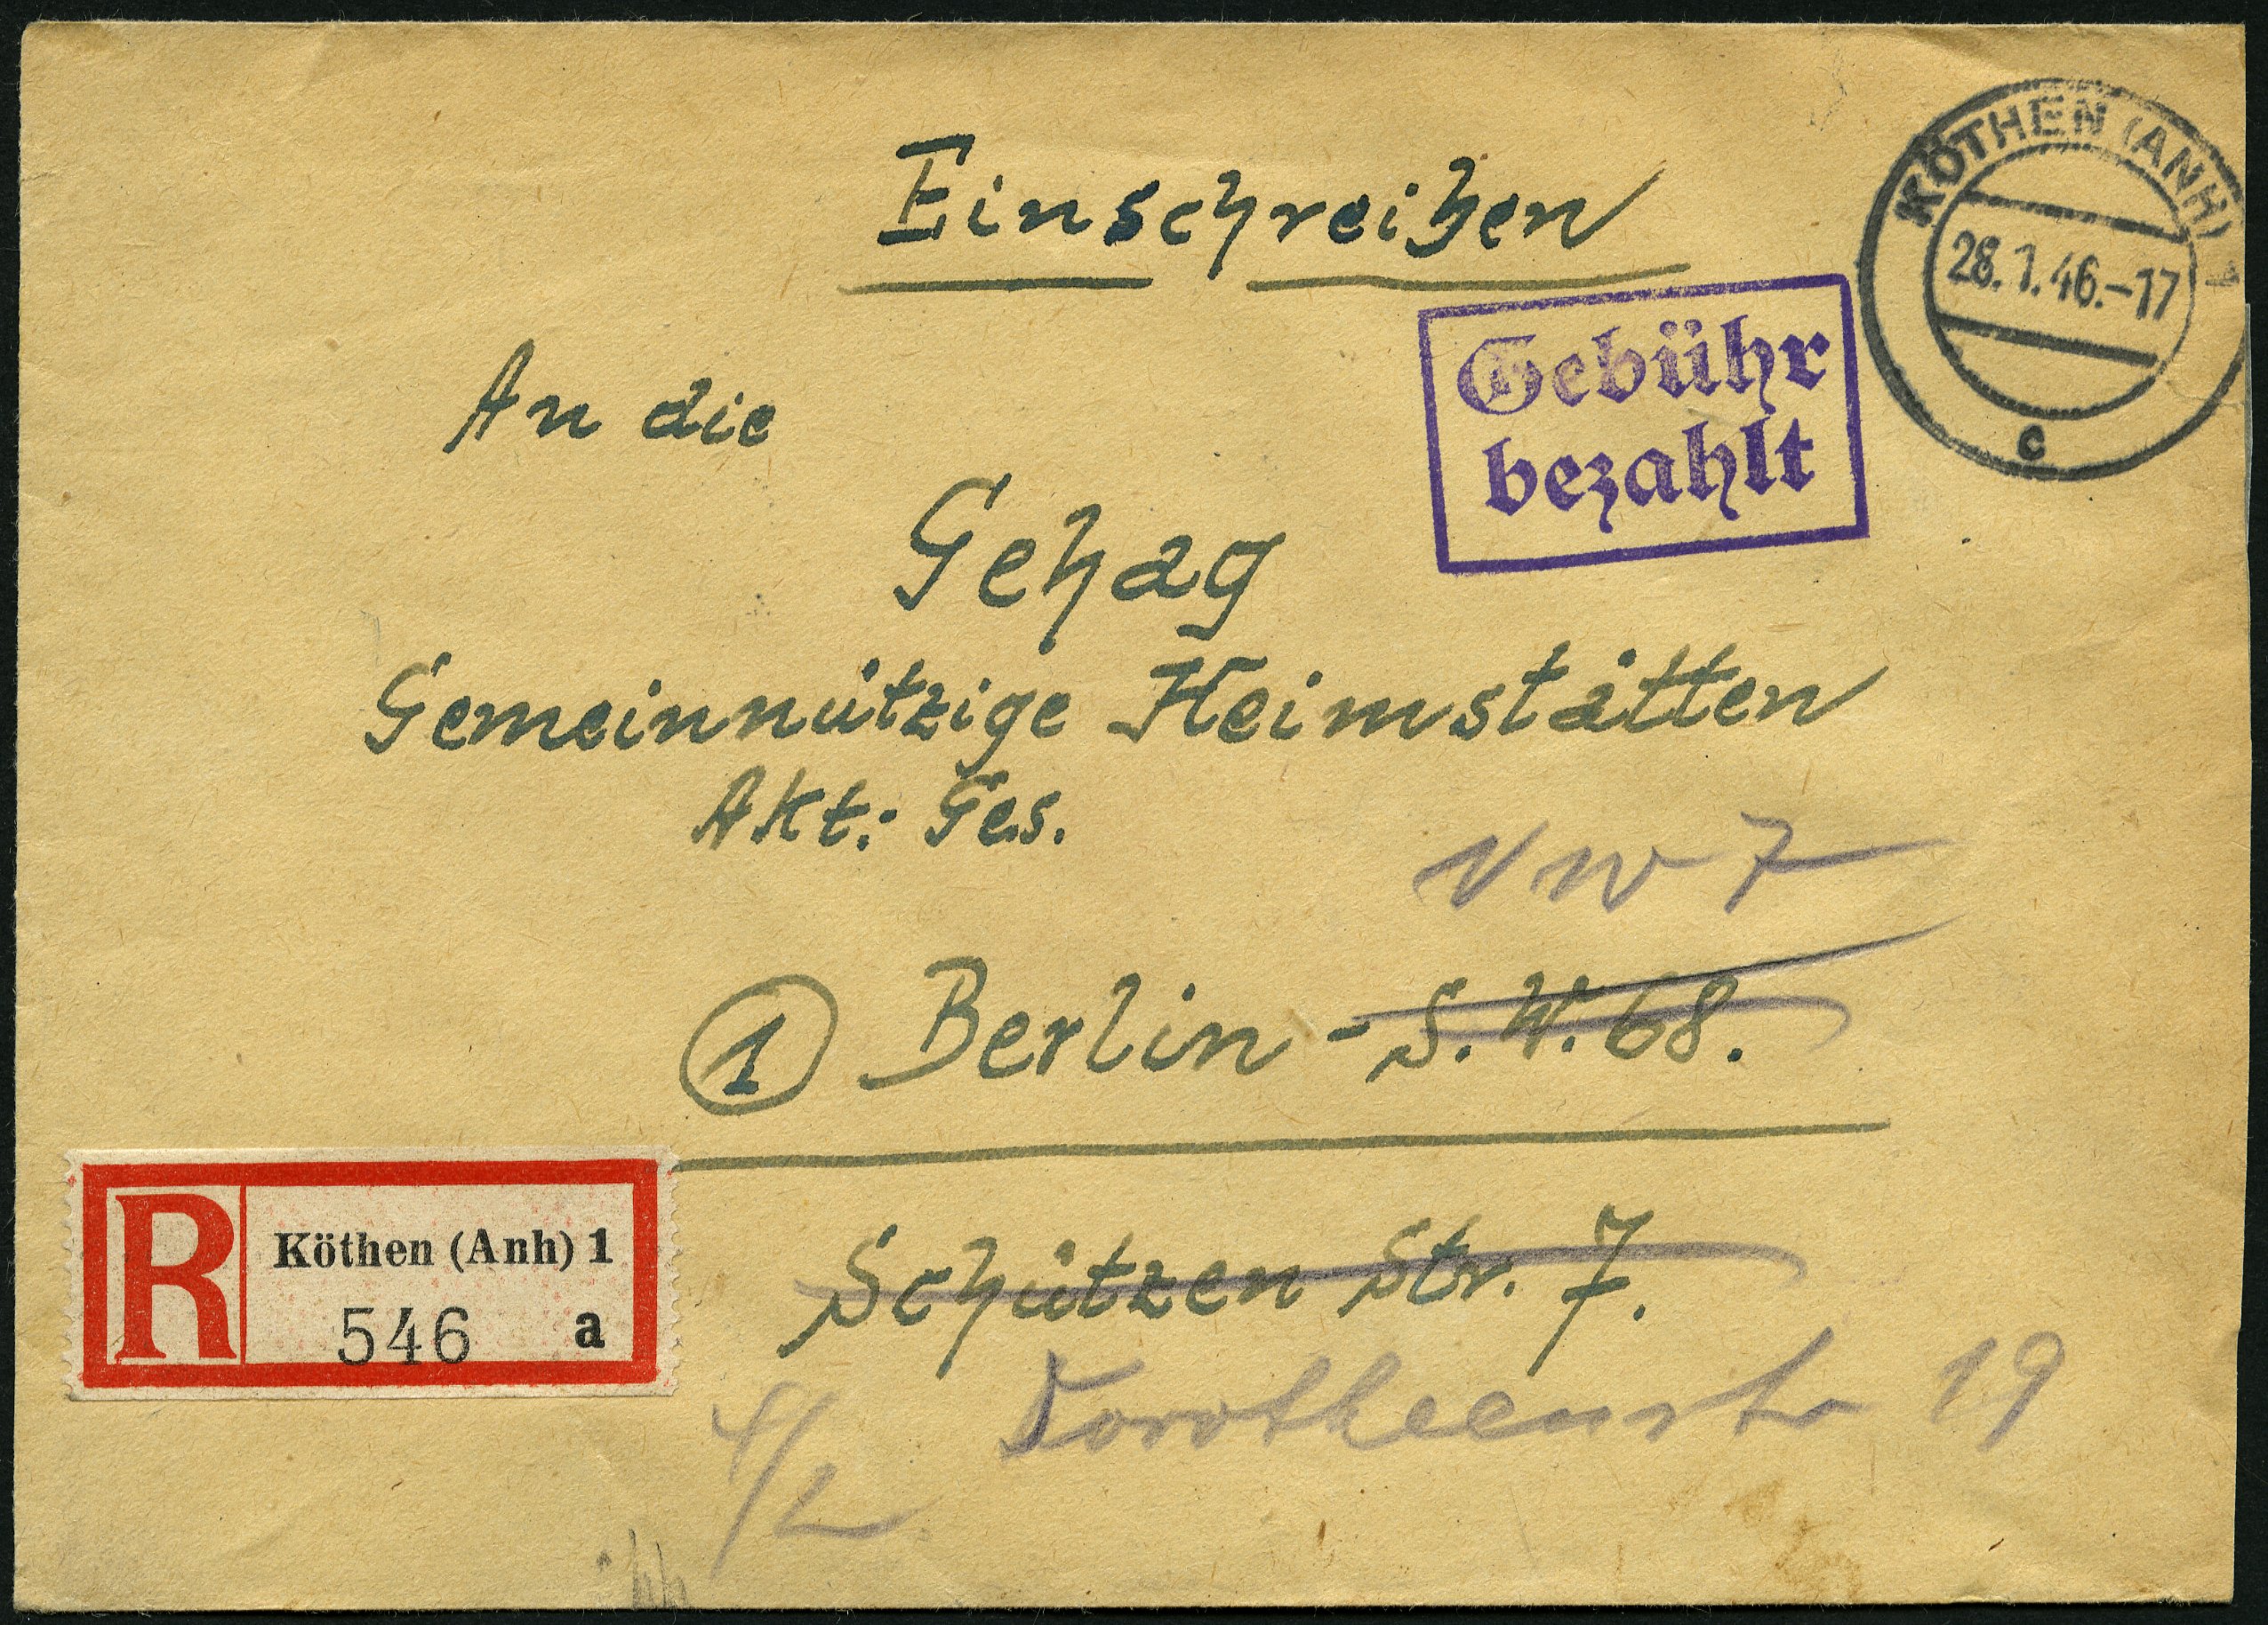 Einschreiben
KÖTHEN (ANH) 1
28.1.46.-17
c
Gebühr
bezahlt
An die
Gehag
Gemeinnützige Heimstätten
Akt: Ges.
NW 7
1 Berlin - S.W. 68.
R
Köthen (Anh) 1
546 a
Schützen Str. 7.
Dorotheenstr 19